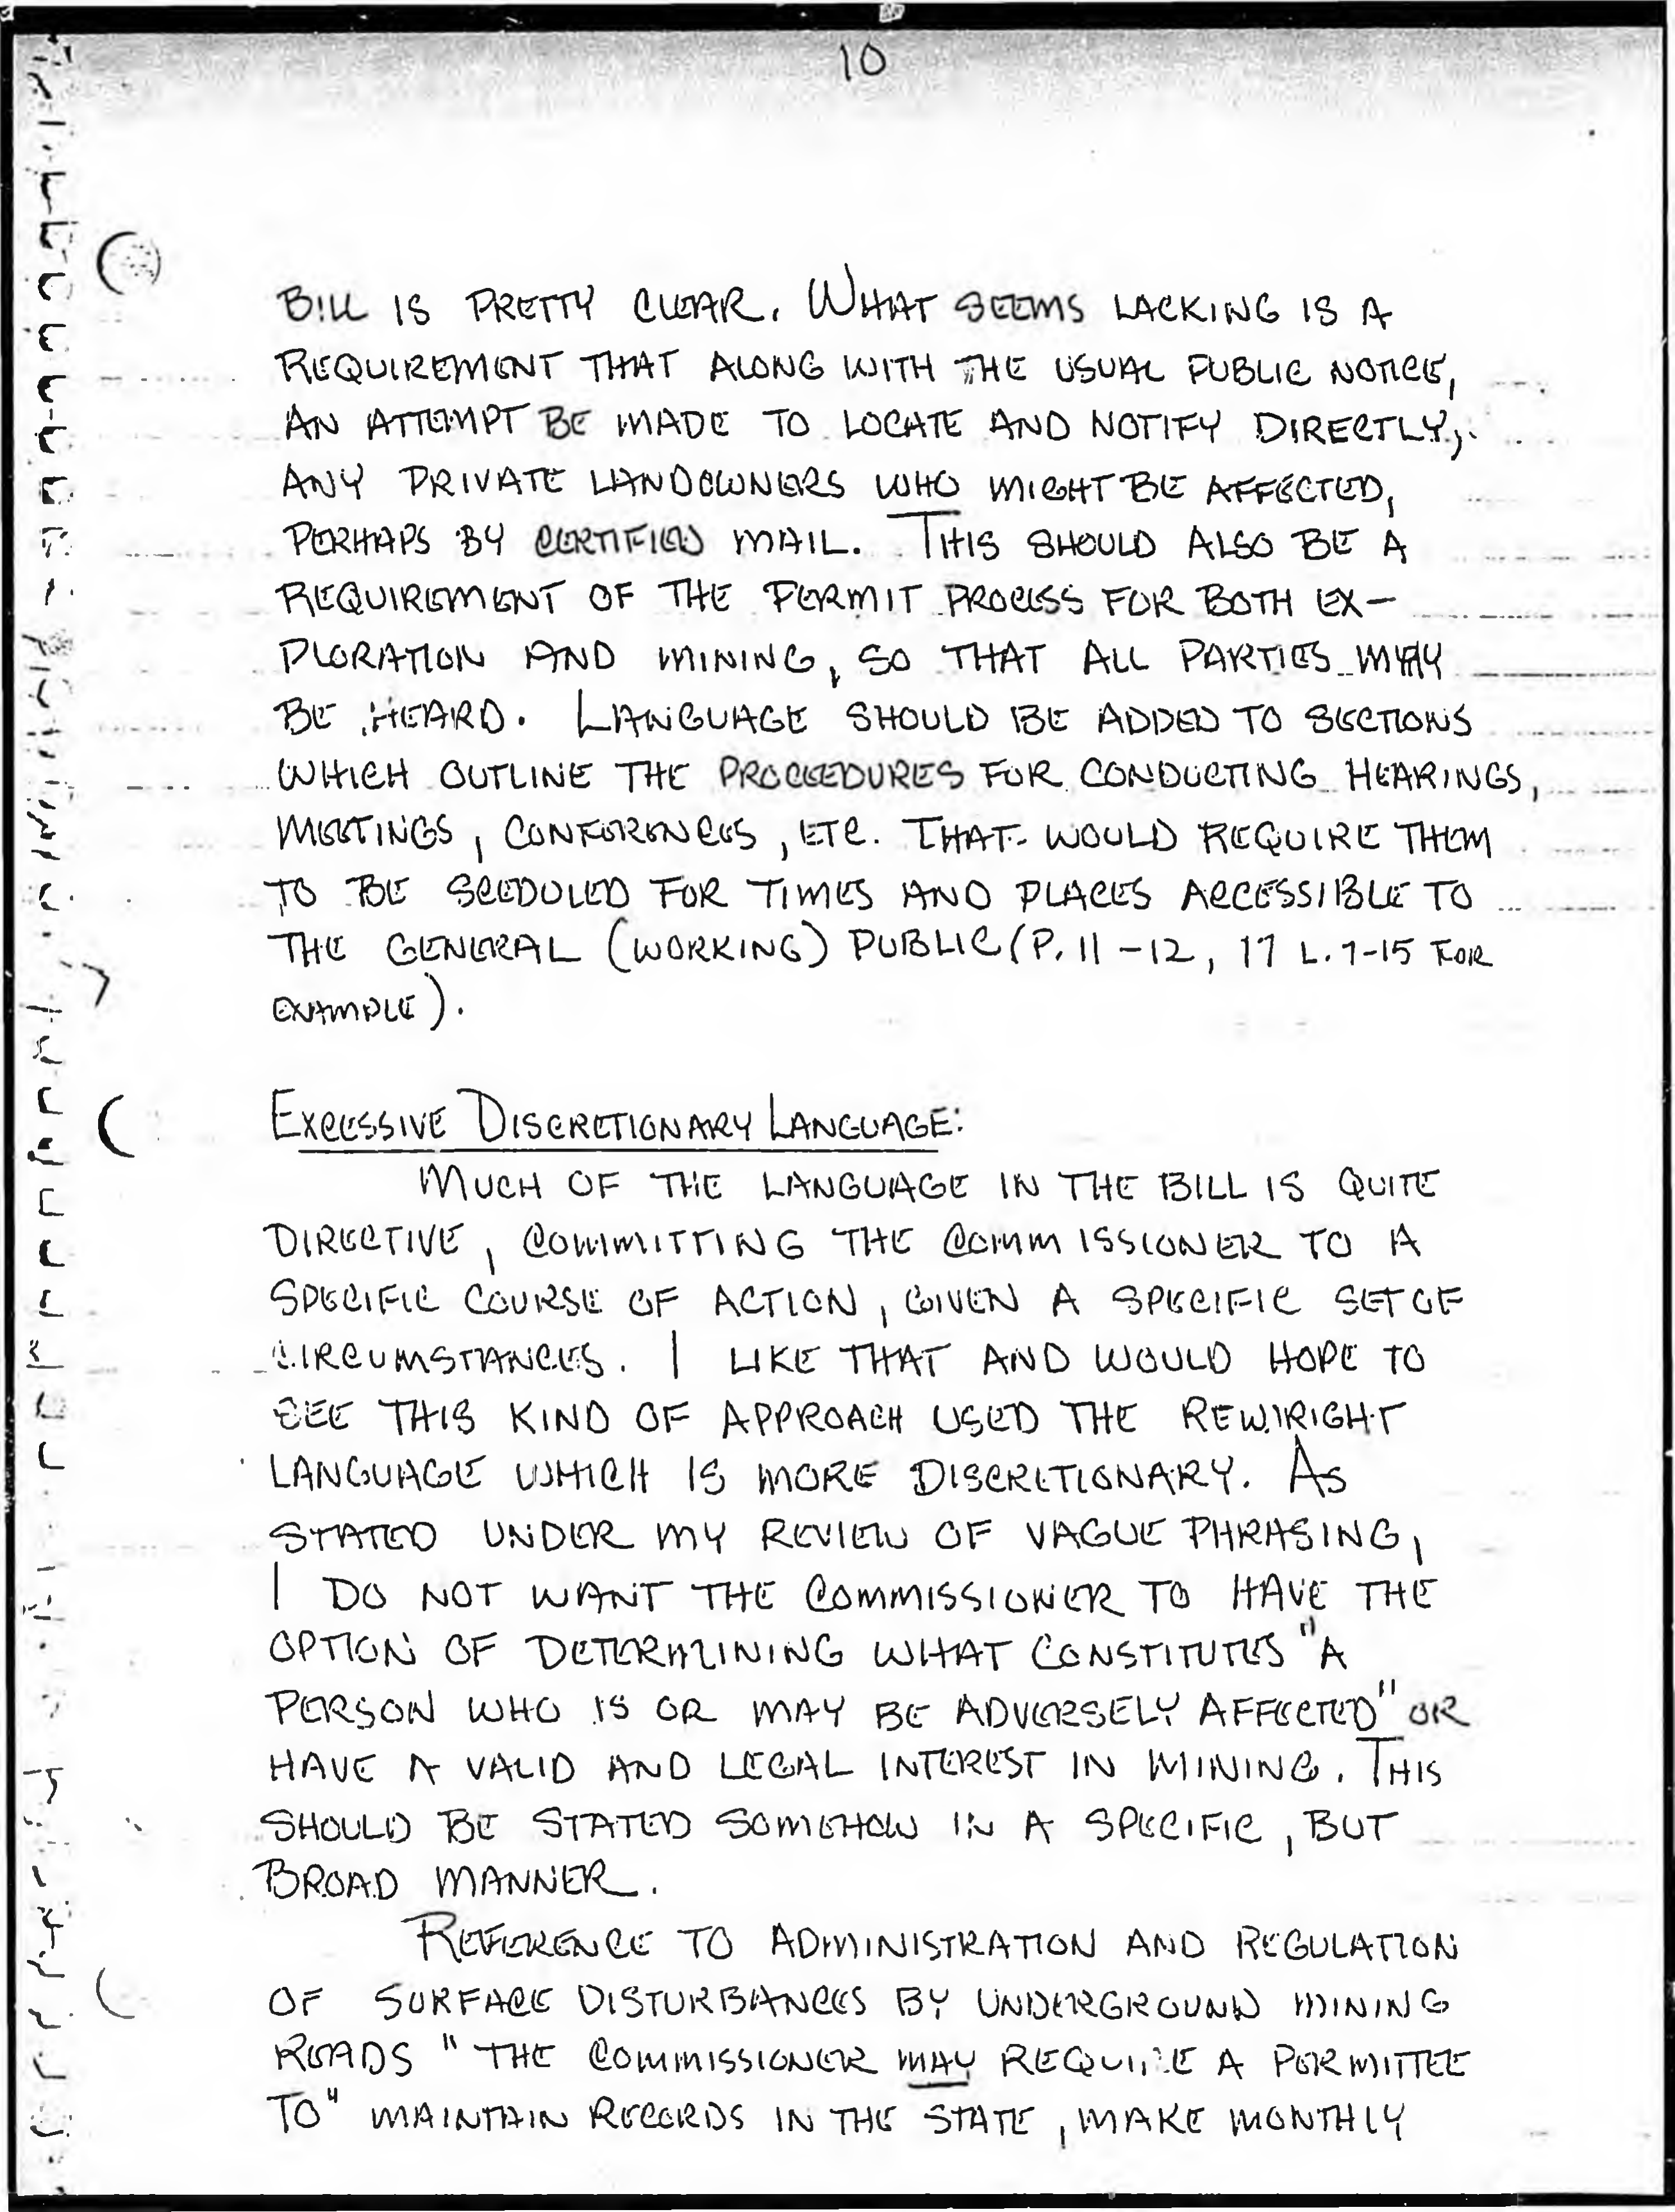 10
BILL IS PRETTY CLEAR. WHAT SEEMS LACKING IS A
REQUIREMENT THAT ALONG WITH THE USUAL PUBLIC NOTICE,
AN ATTEMPT BE MADE TO LOCATE AND NOTIFY DIRECTLY,
ANY PRIVATE LANDOWNERS WHO MIGHT BE AFFECTED,
PERHAPS BY CERTIFIED MAIL. THIS SHOULD ALSO BE A
REQUIREMENT OF THE PERMIT PROCESS FOR BOTH EX-
PLORATION AND MINING, SO THAT ALL PARTIES MAY
BE HEARD. LANGUAGE SHOULD BE ADDED TO SECTIONS
WHICH OUTLINE THE PROCEEDURES FOR CONDUCTING HEARINGS,
MEETINGS, CONFERENCES, ETC. THAT WOULD REQUIRE THEM
TO BE SCEDULED FOR TIMES AND PLACES ACCESSIBLE TO
THE GENERAL (WORKING) PUBLIC (P. 11-12, 17 L. 7-15 FOR
EXAMPLE).
EXCESSIVE DISCRETIONARY LANGUAGE:
MUCH OF THE LANGUAGE IN THE BILL IS QUITE
DIRECTIVE, COMMITTING THE COMMISSIONER TO A
SPECIFIC COURSE OF ACTION, GIVEN A SPECIFIC SET OF
CIRCUMSTANCES. I LIKE THAT AND WOULD HOPE TO
SEE THIS KIND OF APPROACH USED THE REWIRIGHT
LANGUAGE WHICH IS MORE DISCRETIONARY. AS
STATED UNDER MY REVIEW OF VAGUE PHRASING,
I DO NOT WANT THE COMMISSIONER TO HAVE THE
OPTION OF DETERMINING WHAT CONSTITUTES "A
PERSON WHO IS OR MAY BE ADVERSELY AFFECTED" OR
HAVE A VALID AND LEGAL INTEREST IN MINING. THIS
SHOULD BE STATED SOMEHOW IN A SPECIFIC, BUT
BROAD MANNER.
REFERENCE TO ADMINISTRATION AND REGULATION
OF SURFACE DISTURBANCES BY UNDERGROUND MINING
READS "THE COMMISSIONER MAY REQUIRE A PERMITTEE
TO" MAINTAIN RECORDS IN THE STATE, MAKE MONTHLY